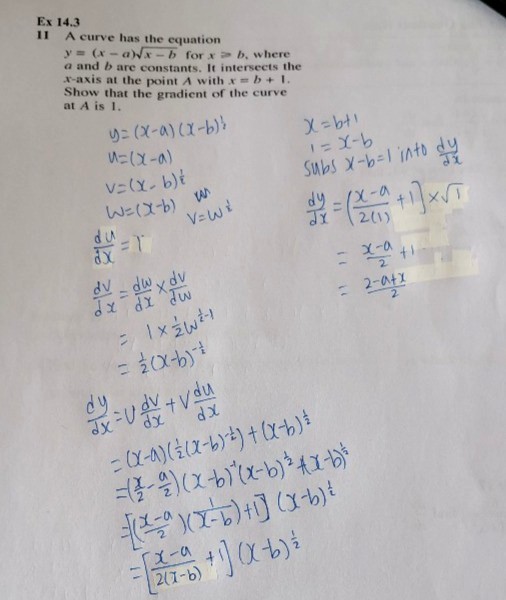 Ex 14.3
11 A curve has the equation
y = (x − a)√x − b for x ⩾ b, where
a and b are constants. It intersects the
x-axis at the point A with x = b + 1.
Show that the gradient of the curve
at A is 1.
y = (x-a)(x-b)^½
u=(x-a)
v=(x-b)^½
w=(x-b)
v=w^½
du/dx = 1
dv/dx = dw/dx × dv/dw
= 1 × ½w^(½-1)
= ½(x-b)^(-½)
dy/dx = u dv/dx + v du/dx
= (x-a)(½(x-b)^(-½)) + (x-b)^½
= (x/2 - a/2)(x-b)^(-1)(x-b)^½ + (x-b)^½
= [(x-a/2)(1/(x-b)) + 1] (x-b)^½
= [x-a/2(x-b) + 1] (x-b)^½
x = b+1
1 = x-b
subs x-b=1 into dy/dx
dy/dx = (x-a/2(1) + 1] × √1
= x-a/2 + 1
= 2-a+x/2